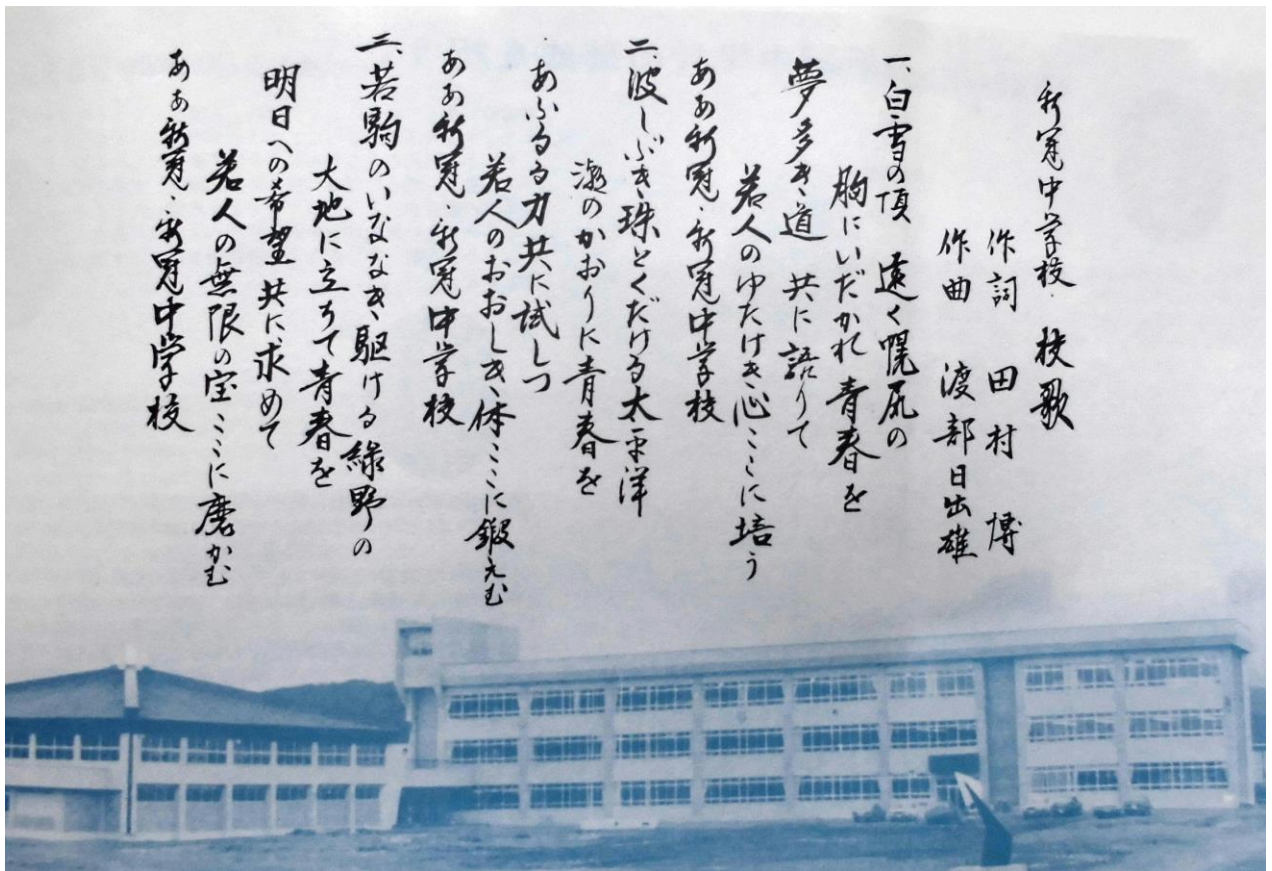 新冠中学校 校歌
作詞 田村 博
作曲 渡部日出雄
一、白雪の頂 遠く幌尻の
胸にいだかれ青春を
夢多き道 共に語りて
若人のゆたけき心ここに培う
ああ新冠・新冠中学校
二、波しぶき珠とくだける太平洋
潮のかおりに青春を
あふるる力共に試しつ
若人のおおしき体ここに鍛えむ
ああ新冠・新冠中学校
三、若駒のいななき駆ける緑野の
大地に立ちて青春を
明日への希望共に求めて
若人の無限の宝ここに磨かむ
ああ新冠・新冠中学校